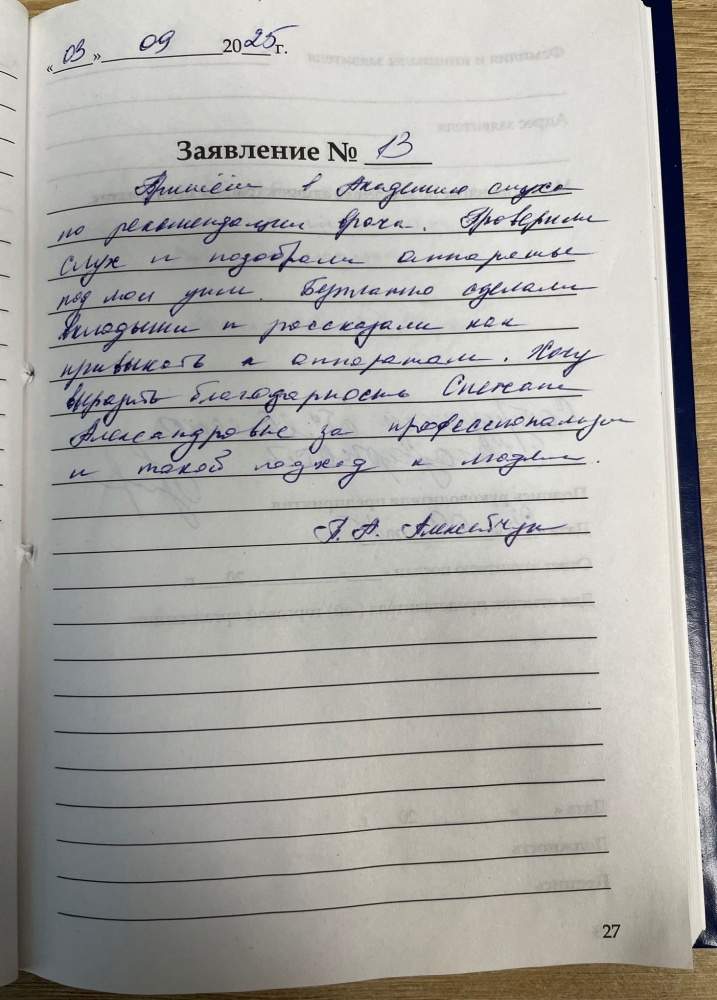 «03» 09 2025 г.
Заявление № 13
Пришёл в Академию слуха
по рекомендации врача. Проверили
слух и подобрали аппараты
под мои уши. Бесплатно сделали
вкладыши и рассказали как
привыкать к аппаратам. Хочу
выразить благодарность Снежане
Александровне за профессионализм
и такой подход к людям.
Г. А.
27